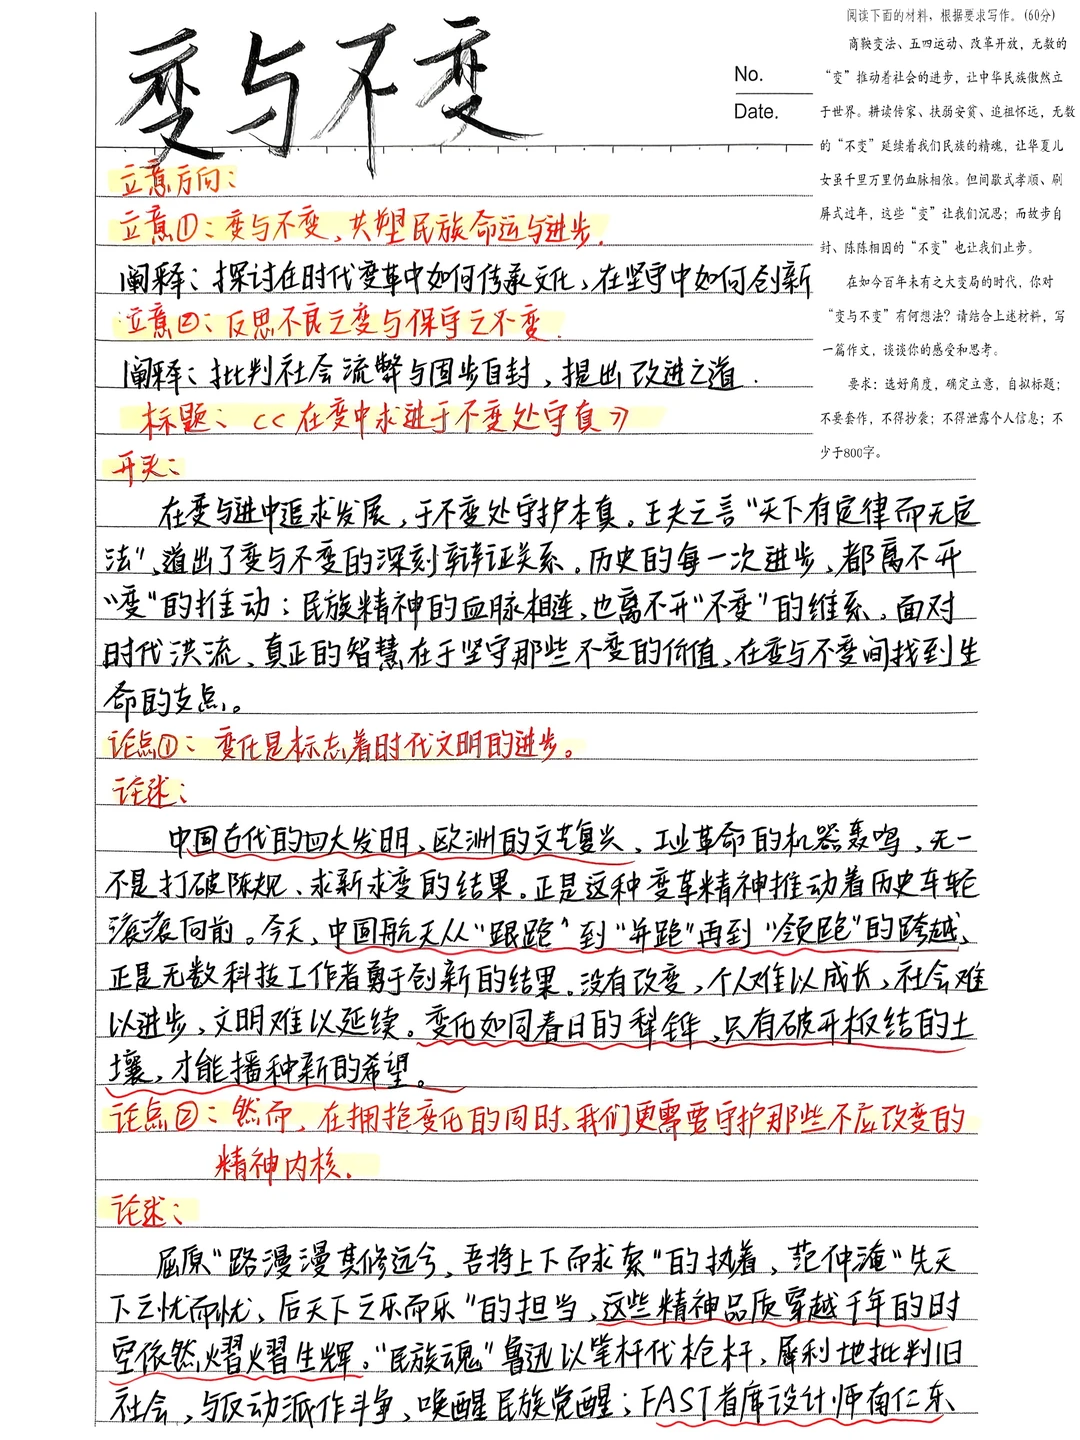 变与不变
No.
Date.
阅读下面的材料，根据要求写作。(60分)
商鞅变法、五四运动、改革开放，无数的
“变”推动着社会的进步，让中华民族傲然立
于世界。耕读传家、扶弱安贫、追祖怀远，无数
的“不变”延续着我们民族的精魂，让华夏儿
女虽千里万里仍血脉相依。但间歇式孝顺、刷
屏式过年，这些“变”让我们沉思；而故步自
封、陈陈相因的“不变”也让我们止步。
在如今百年未有之大变局的时代，你对
“变与不变”有何想法？请结合上述材料，写
一篇作文，谈谈你的感受和思考。
要求：选好角度，确定立意，自拟标题；
不要套作，不得抄袭；不得泄露个人信息；不
少于800字。
立意方向：
立意①：变与不变，共塑民族命运与进步.
阐释：探讨在时代变革中如何传承文化，在坚守中如何创新
立意②：反思不良之变与保守之不变.
阐释：批判社会流弊与固步自封，提出改进之道.
标题：《在变中求进于不变处守真》
开头：
在变与进中追求发展，于不变处守护本真。王夫之言“天下有定律而无定
法”，道出了变与不变的深刻辩证关系。历史的每一次进步，都离不开
“变”的推动；民族精神的血脉相连，也离不开“不变”的维系。面对
时代洪流，真正的智慧在于坚守那些不变的价值，在变与不变间找到生
命的支点。
论点①：变化是标志着时代文明的进步。
论述：
中国古代的四大发明，欧洲的文艺复兴，工业革命的机器轰鸣，无一
不是打破陈规、求新求变的结果。正是这种变革精神推动着历史车轮
滚滚向前。今天，中国航天从“跟跑”到“并跑”再到“领跑”的跨越，
正是无数科技工作者勇于创新的结果。没有改变，个人难以成长，社会难
以进步，文明难以延续。变化如同春日的犁铧，只有破开板结的土
壤，才能播种新的希望。
论点②：然而，在拥抱变化的同时，我们更需要守护那些不应改变的
精神内核.
论述：
屈原“路漫漫其修远兮，吾将上下而求索”的执着，范仲淹“先天
下之忧而忧，后天下之乐而乐”的担当，这些精神品质穿越千年的时
空依然熠熠生辉。“民族魂”鲁迅以笔杆代枪杆，犀利地批判旧
社会，与反动派作斗争，唤醒民族觉醒；FAST首席设计师南仁东